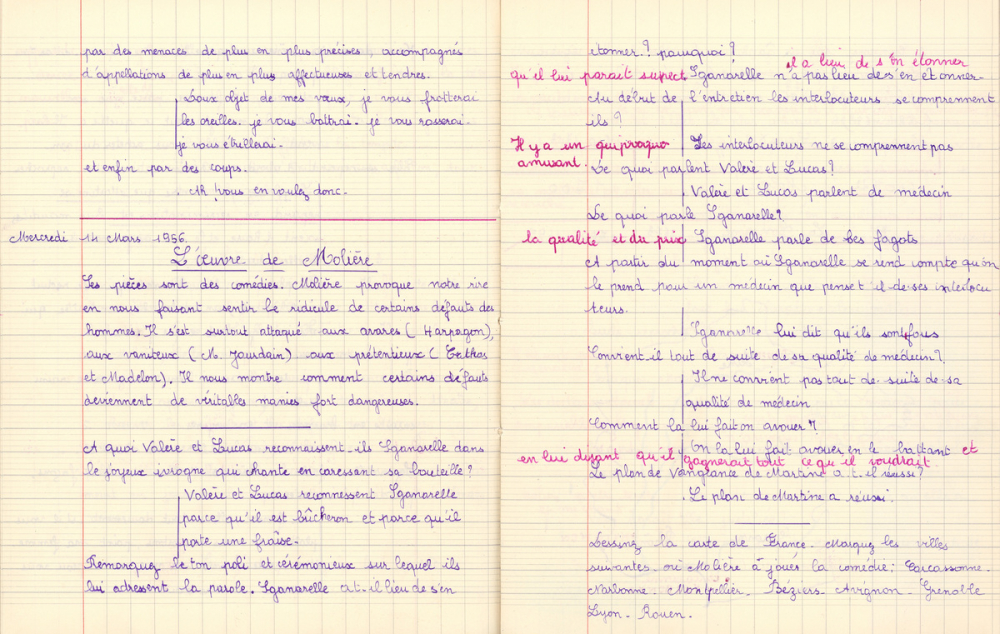 par des menaces de plus en plus précises, accompagnés
d'appellations de plus en plus affectueuses et tendres.
Doux objet de mes vœux, je vous frotterai
les oreilles. je vous battrai. je vous rosserai.
je vous étrillerai.
et enfin par des coups.
. Ah ! vous en voulez donc.
Mercredi 14 Mars 1956
L'œuvre de Molière
Ses pièces sont des comédies. Molière provoque notre rire
en nous faisant sentir le ridicule de certains défauts des
hommes. Il s'est surtout attaqué aux avares (Harpagon),
aux vaniteux (M. Jourdain) aux prétentieux (Cathos
et Madelon). Il nous montre comment certains défauts
deviennent de véritables manies fort dangereuses.
A quoi Valère et Lucas reconnaissent-ils Sganarelle dans
le joyeux ivrogne qui chante en caressant sa bouteille ?
Valère et Lucas reconnessent Sganarelle
parce qu'il est bûcheron et parce qu'il
porte une fraise.
Remarquez le ton poli et cérémonieux sur lequel ils
lui adressent la parole. Sganarelle a.t.il lieu de s'en
étonner ? pourquoi ?
il a lieu de s'en étonner
qu'il lui parait supect Sganarelle n'a pas lieu de s'en étonner
Au début de l'entretien les interlocuteurs se comprennent
ils ?
Il y a un quiproquo Les interlocuteurs ne se comprennent pas
amusant. De quoi parlent Valère et Lucas ?
Valère et Lucas parlent de médecin
De quoi parle Sganarelle ?
la qualité et du prix Sganarelle parle de ses fagots
A partir du moment où Sganarelle se rend compte qu'on
le prend pour un médecin que penset il de ses interlocu
teurs.
Sganarelle lui dit qu'ils sont fous
Convient.il tout de suite de sa qualité de médecin ?
Il ne convient pas tout de suite de sa
qualité de médecin
Comment la lui fait on avouer ?
On la lui fait avouer en le battant et
en lui disant qu'il gagnerait tout ce qu'il voudrait
Le plan de vangeance de Martine a.t.il réussi ?
. Le plan de Martine a réussi.
Dessinez la carte de France. Marquez les villes
suivantes où Molière à jouès la comédie : Carcassonne.
Narbonne. Montpellier. Béziers. Avignon. Grenoble
Lyon. Rouen.